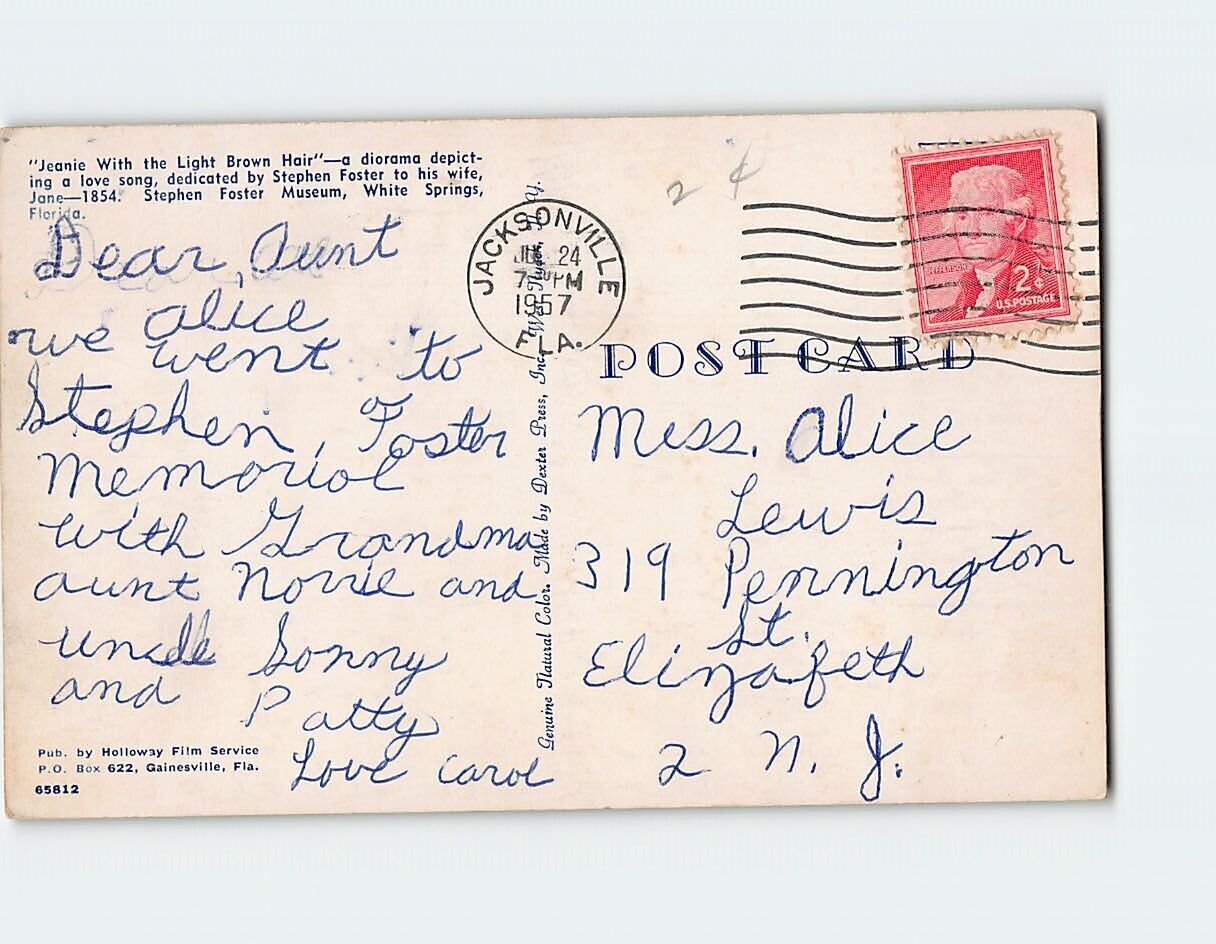 "Jeanie With the Light Brown Hair"—a diorama depict-
ing a love song, dedicated by Stephen Foster to his wife,
Jane—1854. Stephen Foster Museum, White Springs,
Florida.
Dear, Aunt
Alice
we went to
Stephen, Foster
Memoriol
with Grandma
aunt Norrie and
uncle Sonny
and Patty
Love Carol
Pub. by Holloway Film Service
P.O. Box 622, Gainesville, Fla.
65812
Genuine Natural Color. Made by Dexter Press, Inc., West Nyack, N.Y.
JACKSONVILLE
JUL 24
PM
1957
FLA.
2 ¢
JEFFERSON
2¢
U.S. POSTAGE
POST CARD
Mess. Alice
Lewis
319 Pennington
St.
Elizabeth
2 N. J.